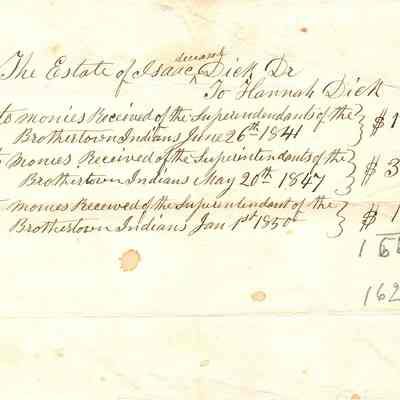 deceased
The Estate of Isaac ^ Dick Dr
To Hannah Dick
to monies Received of the Superendandants of the } $1
Brothertown Indians June 26th 1841
monies Received of the Superintendants of the } $3
Brothertown Indians May 20th 1847
monies Received of the Superintendant of the } $1
Brothertown Indians Jan 1st 1850
16
162